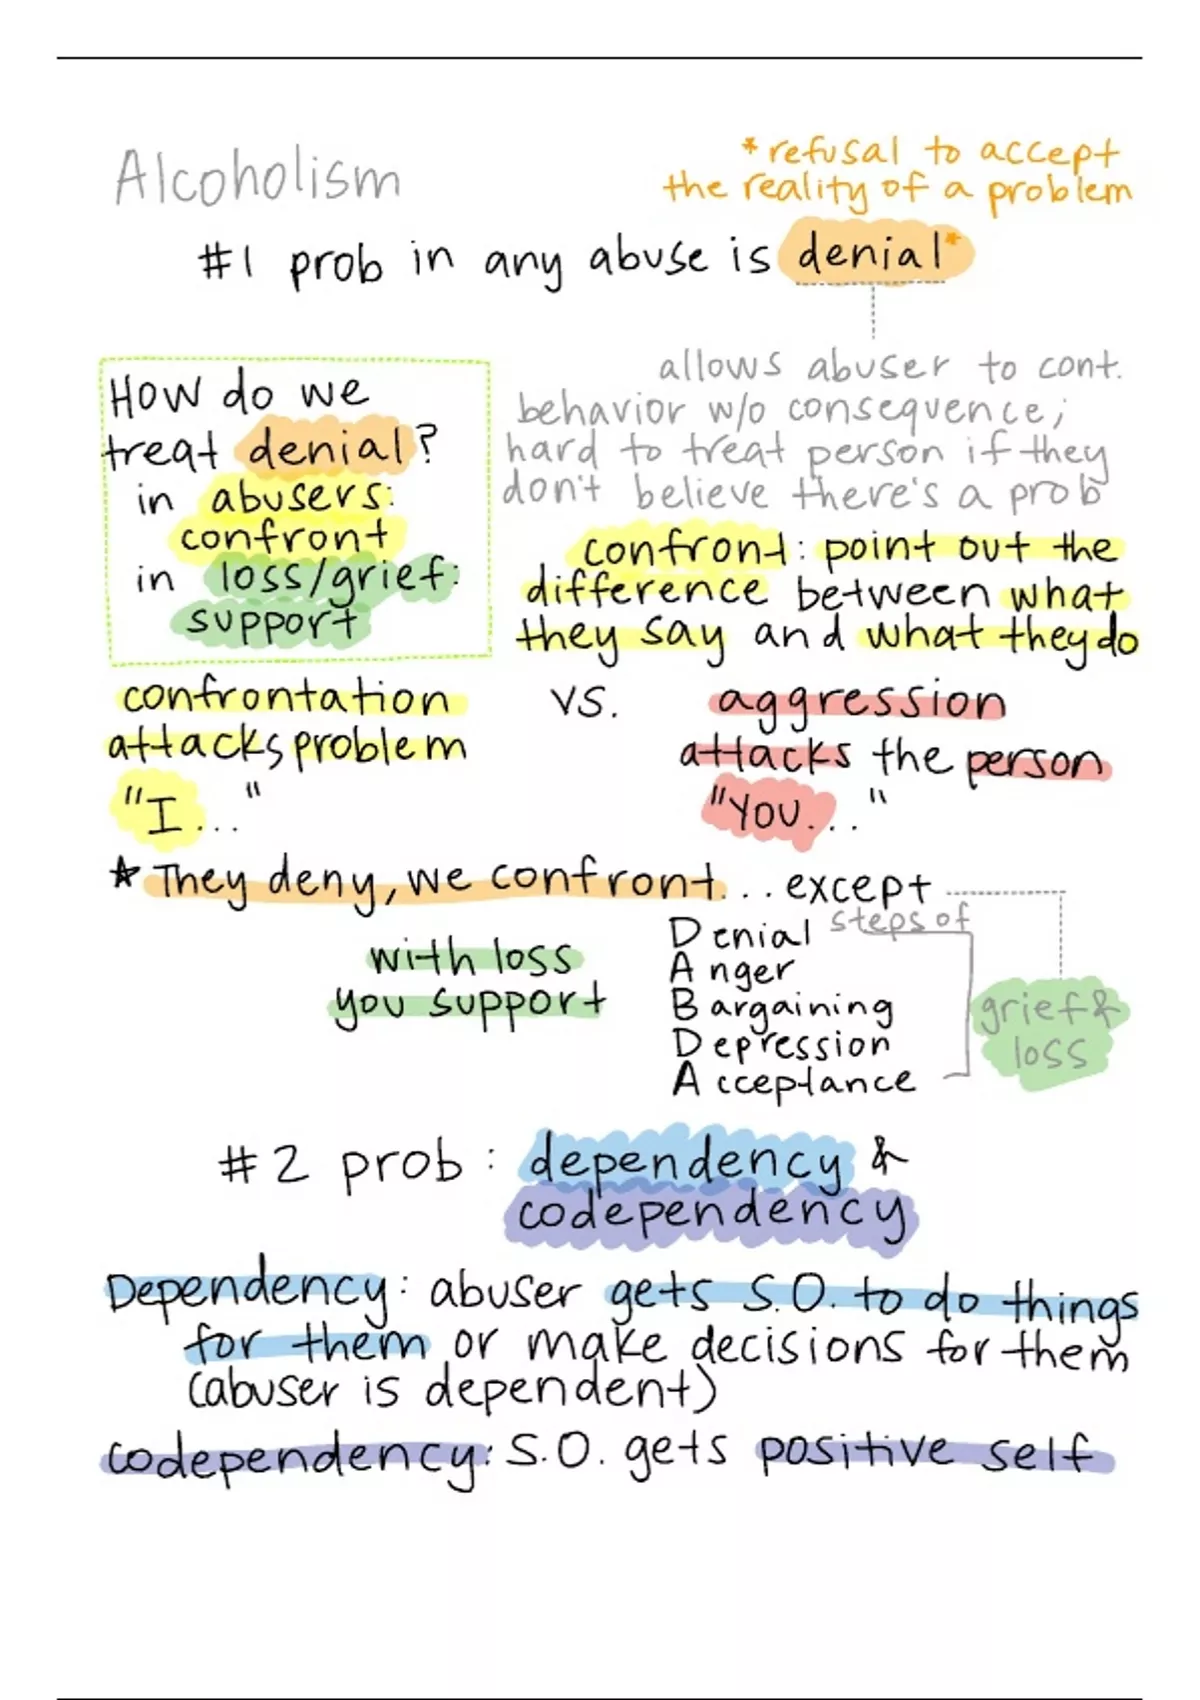 Alcoholism
*refusal to accept
the reality of a problem
#1 prob in any abuse is denial*
allows abuser to cont.
behavior w/o consequence;
hard to treat person if they
don't believe there's a prob
How do we
treat denial?
in abusers:
confront
in loss/grief:
support
confront: point out the
difference between what
they say and what they do
confrontation
attacks problem
"I..."
vs.
aggression
attacks the person
"You..."
*They deny, we confront...except
with loss
you support
steps of
Denial
Anger
Bargaining
Depression
Acceptance
grief &
loss
#2 prob: dependency &
codependency
Dependency: abuser gets S.O. to do things
for them or make decisions for them
(abuser is dependent)
codependency: S.O. gets positive self